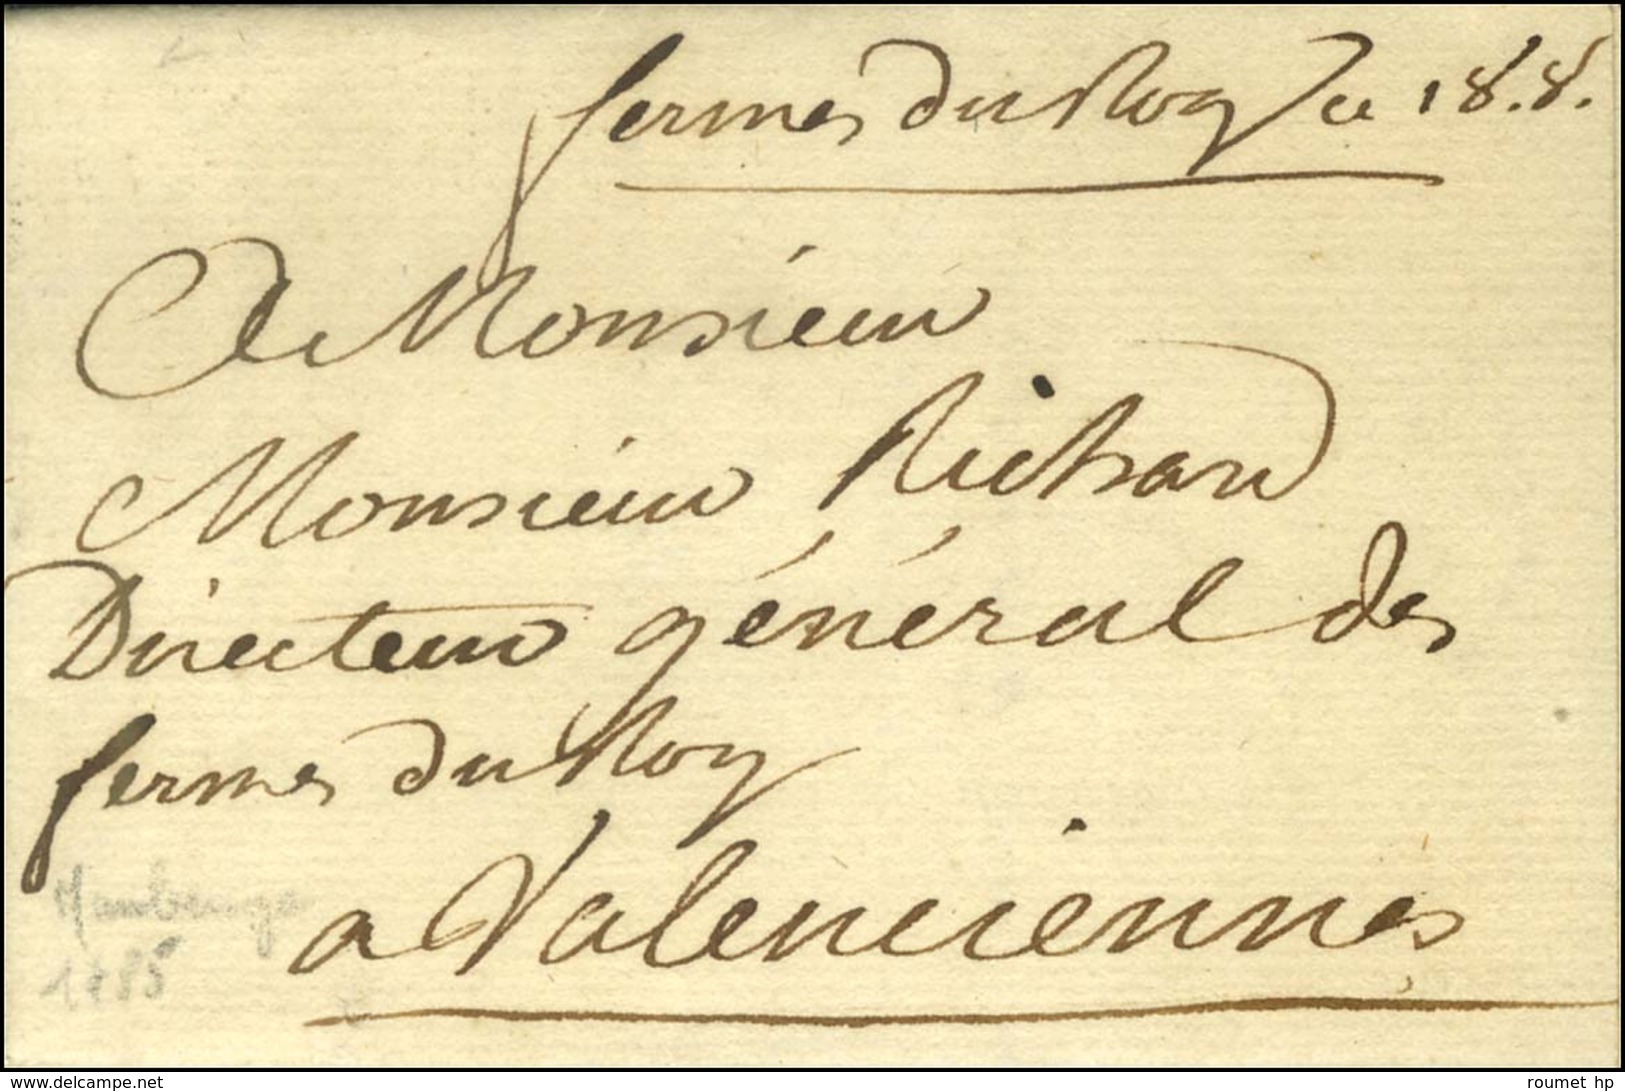 fermes du Roy ce 18. 8.
A Monsieur
Monsieur Richard
Directeur général des
fermes du Roy
a Valenciennes
Maubeuge
1785
www.delcampe.net
roumet hp